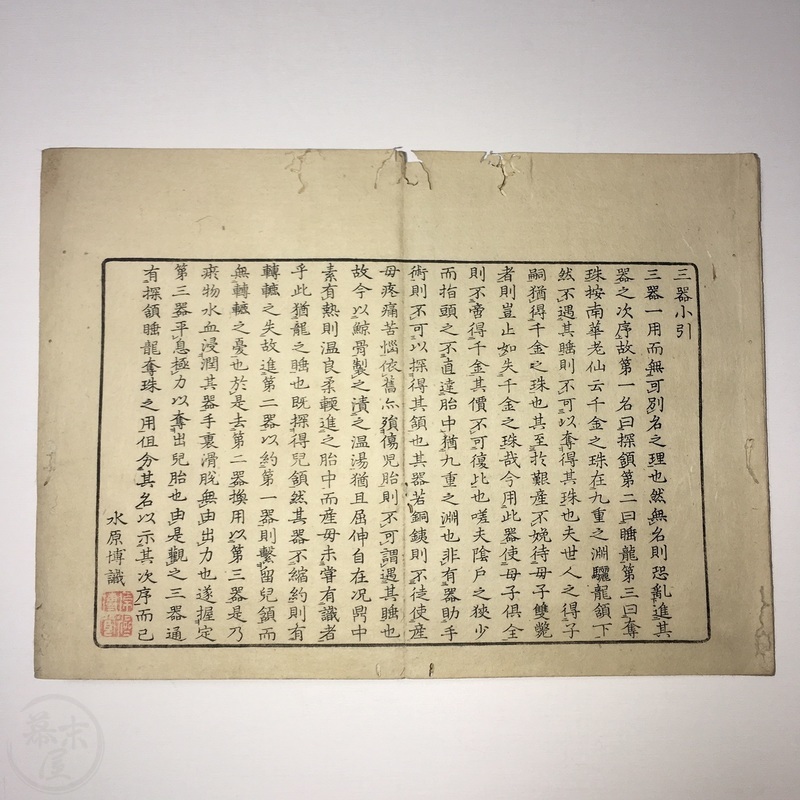 三器小引
三器一用而無可別名之理也然無名則恐亂進其
器之次序故第一名曰探頷第二曰睡龍第三曰奪
珠按南華老仙云千金之珠在九重之淵驪龍頷下
然不遇其睡則不可以奪得其珠也夫世人之得子
嗣猶得千金之珠也其至於艱産不娩待母子雙斃
者則豈止如失千金之珠哉今用此器使母子俱全
則不啻得千金其價不可復比也嗟夫陰戶之狹少
而指頭之不直達胎中猶九重之淵也非有器助手
術則不可以探得其頷也其器若銅銕則不徒使産
母疼痛苦惱依舊亦殞傷児胎則不可謂遇其睡也
故今以鯨骨製之漬之温湯猶且屈伸自在况鼎中
素有熱則温良柔輭進之胎中而産母未嘗有識者
乎此猶龍之睡也既探得兒頷然其器不縮約則有
轉轆之失故進第二器以約第一器則繫留兒頷而
無轉轆之憂也於是去第二器換用以第三器是乃
瘀物水血浸潤其器手裏滑脫無由出力也遂握定
第三器平息極力以奪出兒胎也由是觀之三器通
有探頷睡龍奪珠之用但分其名以示其次序而已
水原博識
幕末屋